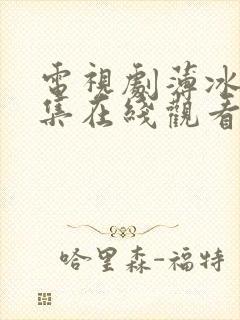 電視劇薄冰
集在綫觀看
哈里森-福特